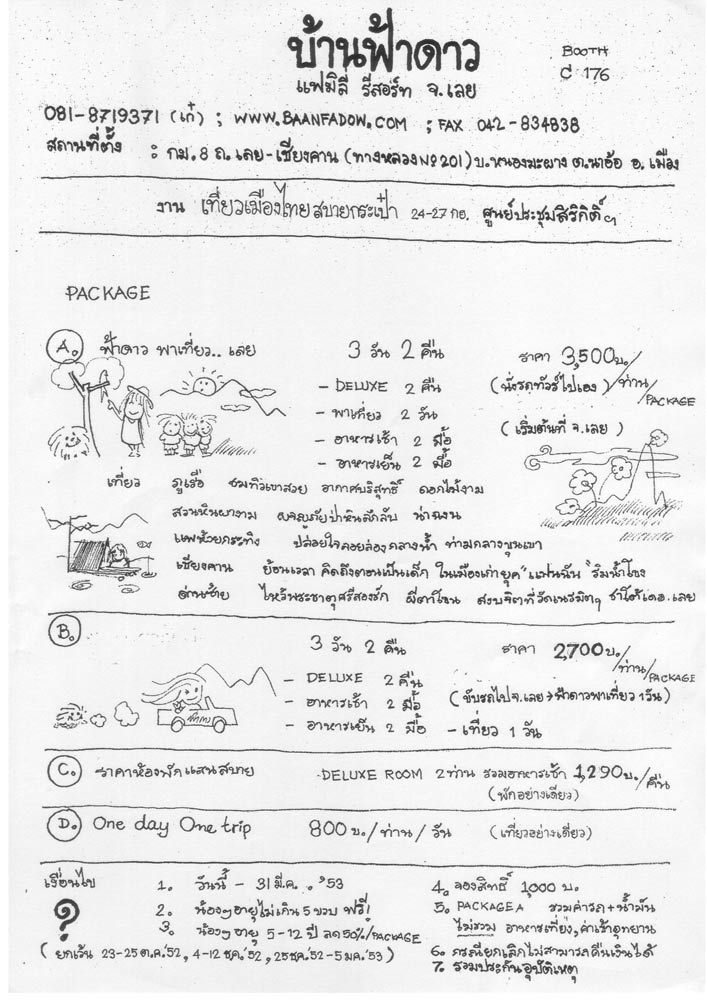 บ้านฟ้าดาว
BOOTH
C 176
แฟมิลี่ รีสอร์ท จ.เลย
081-8719371 (เก๋) ; WWW.BAANFADOW.COM ; FAX 042-834838
สถานที่ตั้ง : กม.8 ถ.เลย-เชียงคาน (ทางหลวง№201) บ.หนองมะผาง ต.นาอ้อ อ.เมือง
งาน เที่ยวเมืองไทยสบายกระเป๋า 24-27 กย. ศูนย์ประชุมสิริกิติ์ฯ
PACKAGE
A. ฟ้าดาว พาเที่ยว.. เลย 3 วัน 2 คืน ราคา 3,500บ./ท่าน/PACKAGE
- DELUXE 2 คืน (นั่งรถทัวร์ไปเอง)
- พาเที่ยว 2 วัน
- อาหารเช้า 2 มื้อ (เริ่มต้นที่ จ.เลย)
- อาหารเย็น 2 มื้อ
เที่ยว ภูเรือ ชมทิวเขาสวย อากาศบริสุทธิ์ ดอกไม้งาม
สวนหินผางาม ผจญภัยป่าหินลึกลับ น่าฉงน
แพห้วยกระทิง ปล่อยใจลอยล่องกลางน้ำ ท่ามกลางขุนเขา
เชียงคาน ย้อนเวลา คิดถึงตอนเป็นเด็ก ในเมืองเก่ายุค "แฟนฉัน" ริมน้ำโขง
ด่านซ้าย ไหว้พระธาตุศรีสองรัก ผีตาโขน สงบจิตที่วัดเนรมิตฯ ชาโต้เดอ.เลย
B. 3 วัน 2 คืน ราคา 2,700บ./ท่าน/PACKAGE
- DELUXE 2 คืน
- อาหารเช้า 2 มื้อ (ขับรถไปจ.เลย→ฟ้าดาวพาเที่ยว 1วัน)
- อาหารเย็น 2 มื้อ - เที่ยว 1 วัน
C. ราคาห้องพักแสนสบาย DELUXE ROOM 2ท่าน รวมอาหารเช้า 1,290บ./คืน
(พักอย่างเดียว)
D. One day One trip 800 บ./ท่าน/วัน (เที่ยวอย่างเดียว)
เงื่อนไข
?
1. วันนี้ - 31 มี.ค. '53
2. น้องๆอายุไม่เกิน 5 ขวบ ฟรี!
3. น้องๆ อายุ 5-12 ปี ลด50%/PACKAGE
(ยกเว้น 23-25 ต.ค.'52, 4-12 ธค.'52, 25ธค.'52-5 มค.'53)
4. จองสิทธิ์ 1,000 บ.
5. PACKAGE A รวมค่ารถ+น้ำมัน
ไม่รวม อาหารเที่ยง, ค่าเข้าอุทยาน
6. กรณียกเลิกไม่สามารถคืนเงินได้
7. รวมประกันอุบัติเหตุ